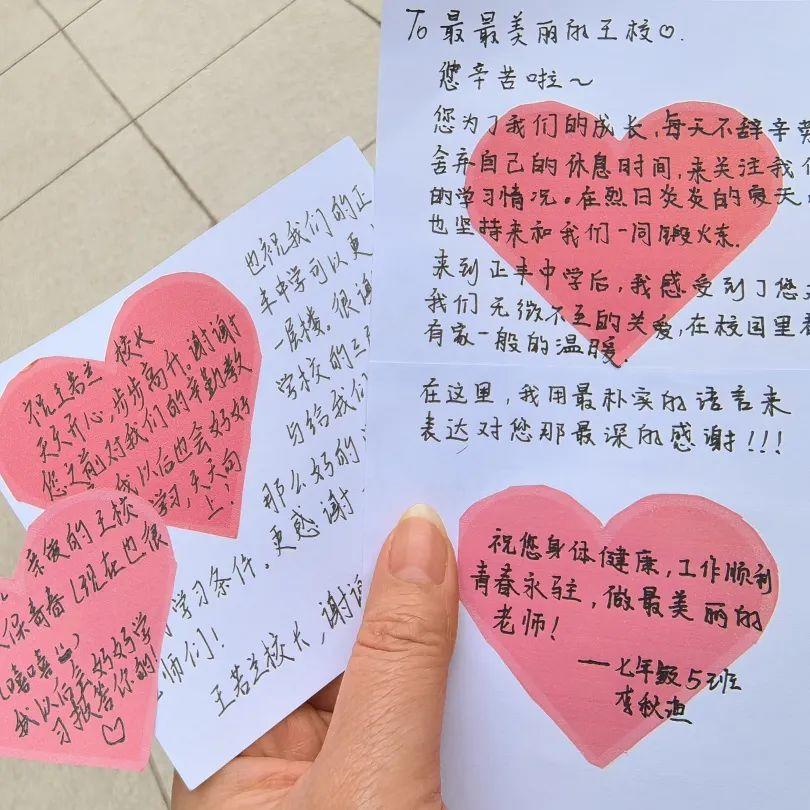 To 最最美丽的王校♡.
您辛苦啦~
您为了我们的成长,每天不辞辛劳
舍弃自己的休息时间,来关注我们
的学习情况。在烈日炎炎的夏天
也坚持来和我们一同锻炼.
来到正丰中学后,我感受到了您
我们无微不至的关爱,在校园里
有家一般的温暖.
在这里,我用最朴实的语言来
表达对您那最深的感谢!!!
祝您身体健康,工作顺利
青春永驻,做最美丽的
老师!
——七年级5班
李秋
也祝我们的正
丰中学可以更
一层楼。很谢
学校的
与给我们
那么好的
学习条件。更感谢
师们!
王若兰校长,谢谢
祝王若兰校长
天天开心,步步高升。谢谢
您之前对我们的辛勤教
我以后也会好好
学习,天天向
上!
亲爱的王校
保奇
(现在也很
嘻嘻)
我以后会好好学
习报答你的♡